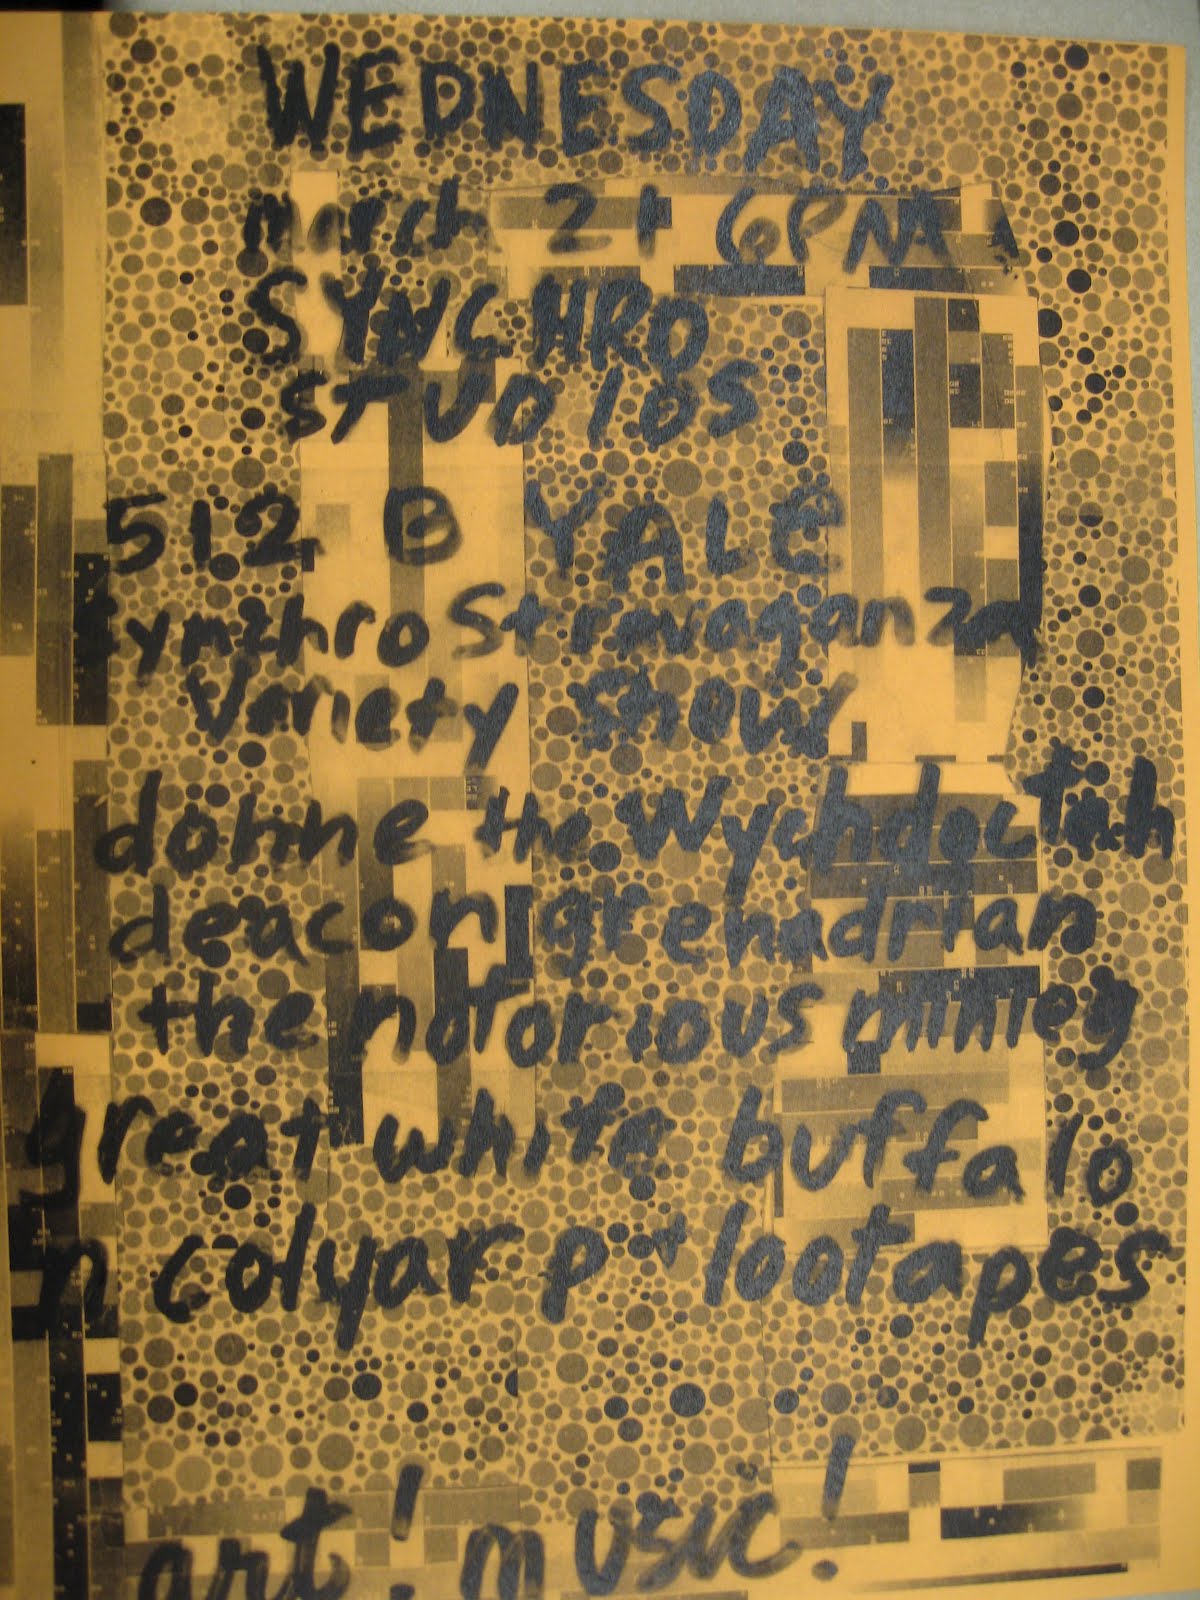 WEDNESDAY
March 21 6PM
SYNCHRO
STUDIOS
512 B YALE
Synchro Stravaganza
Variety Show
dohne the Wychdoctah
deacon grenadrian
the notorious minieg
great white buffalo
n colyar p + lootapes
art! music!